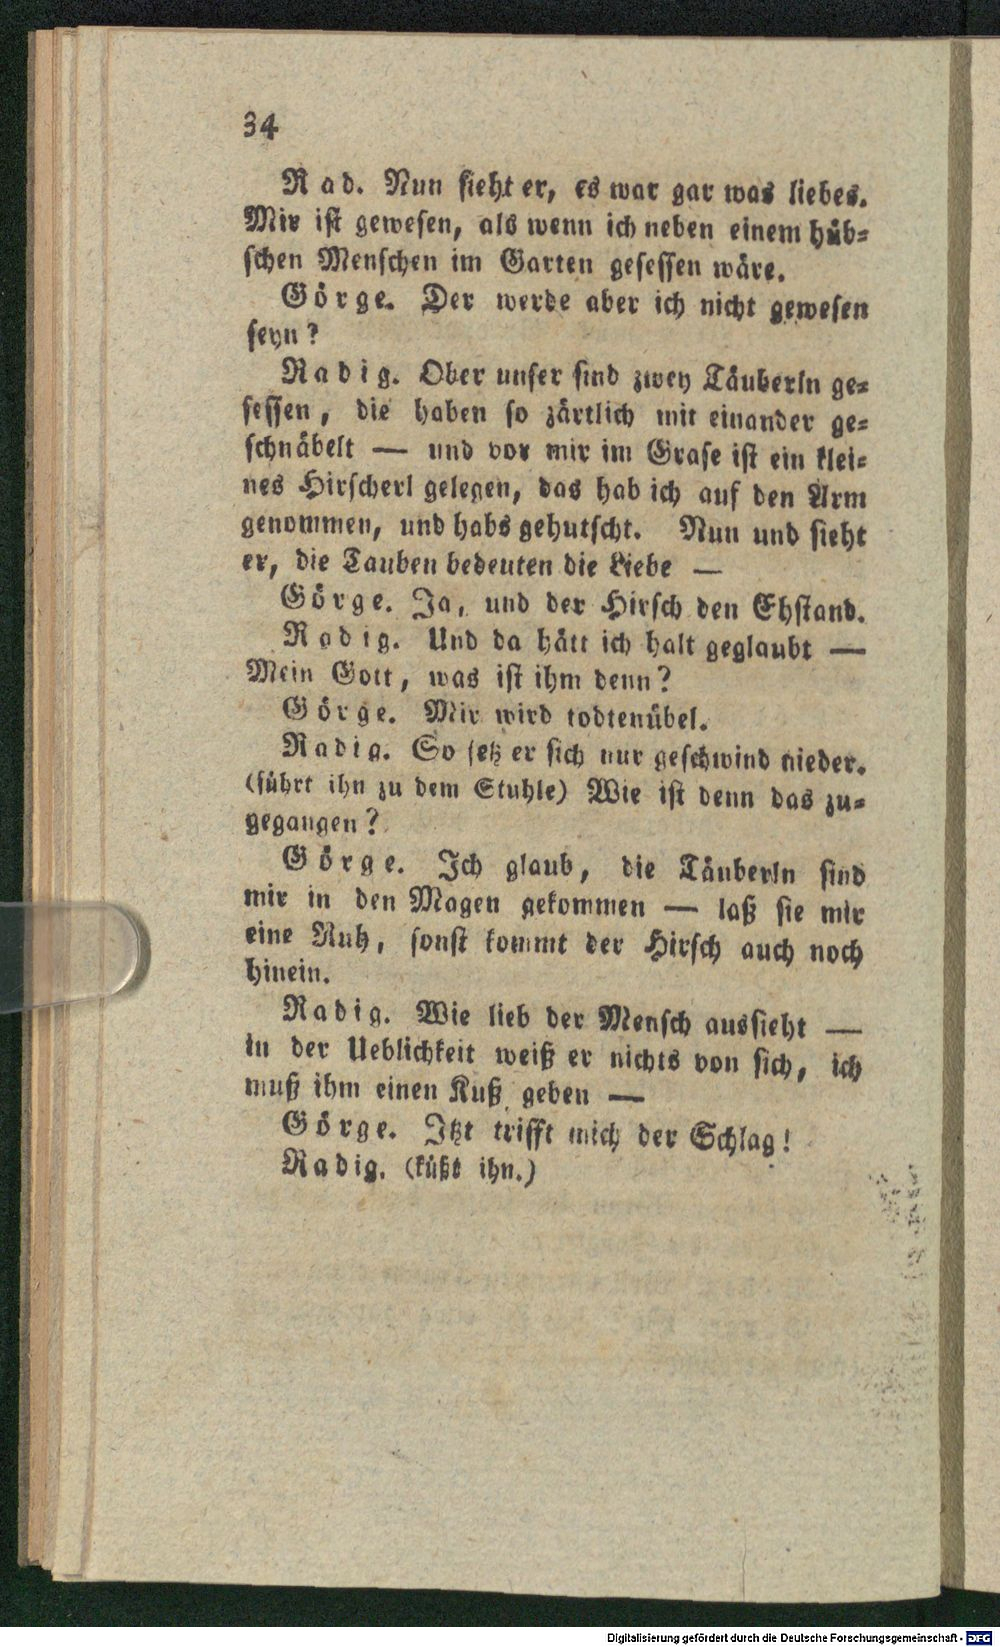 34
Rad. Nun sieht er, es war gar was liebes.
Mir ist gewesen, als wenn ich neben einem hüb=
schen Menschen im Garten gesessen wäre.
Görge. Der werde aber ich nicht gewesen
seyn?
Radig. Ober unser sind zwey Täuberln ge=
sessen, die haben so zärtlich mit einander ge=
schnäbelt — und vor mir im Grase ist ein klei=
nes Hirscherl gelegen, das hab ich auf den Arm
genommen, und habs gehutscht. Nun und sieht
er, die Tauben bedeuten die Liebe —
Görge. Ja, und der Hirsch den Ehstand.
Radig. Und da hätt ich halt geglaubt —
Mein Gott, was ist ihm denn?
Görge. Mir wird todtenübel.
Radig. So setz er sich nur geschwind nieder.
(führt ihn zu dem Stuhle) Wie ist denn das zu=
gegangen?
Görge. Ich glaub, die Täuberln sind
mir in den Magen gekommen — laß sie mir
eine Ruh, sonst kommt der Hirsch auch noch
hinein.
Radig. Wie lieb der Mensch aussieht —
in der Ueblichkeit weiß er nichts von sich, ich
muß ihm einen Kuß geben —
Görge. Itzt trifft mich der Schlag!
Radig. (küßt ihn.)
Digitalisierung gefördert durch die Deutsche Forschungsgemeinschaft - DFG